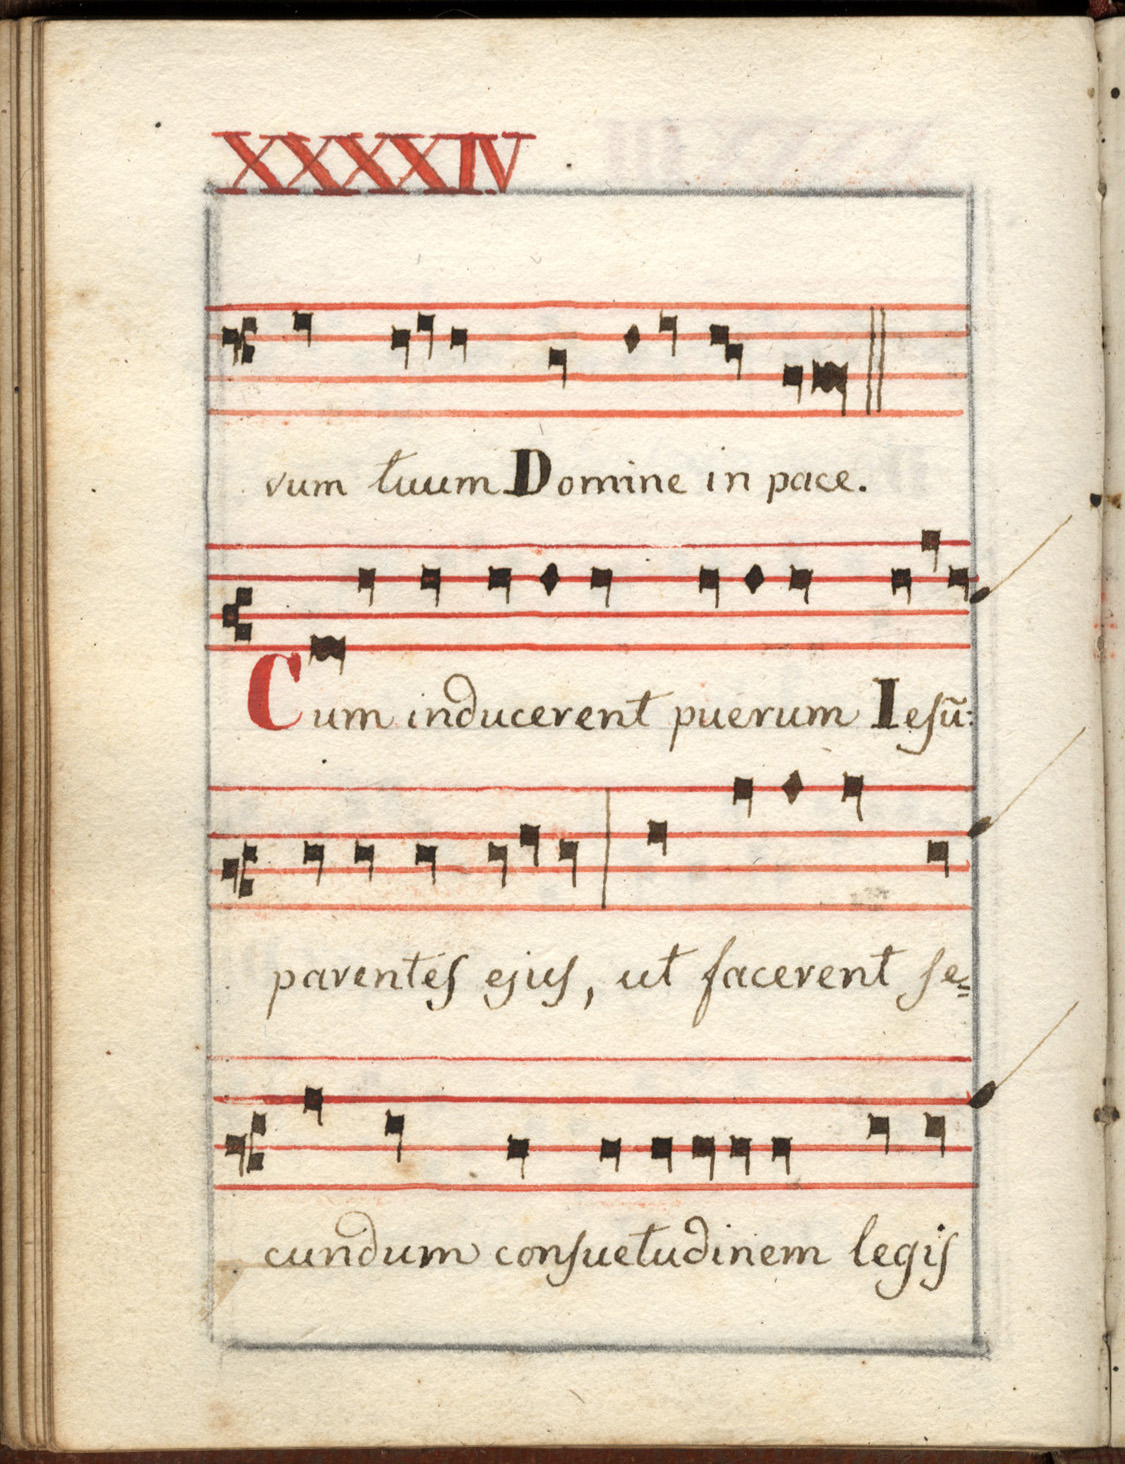 XXXXIV
vum tuum Domine in pace.
Cum inducerent puerum Iesũ:
parentes ejus, ut facerent se=
cundum consuetudinem legis